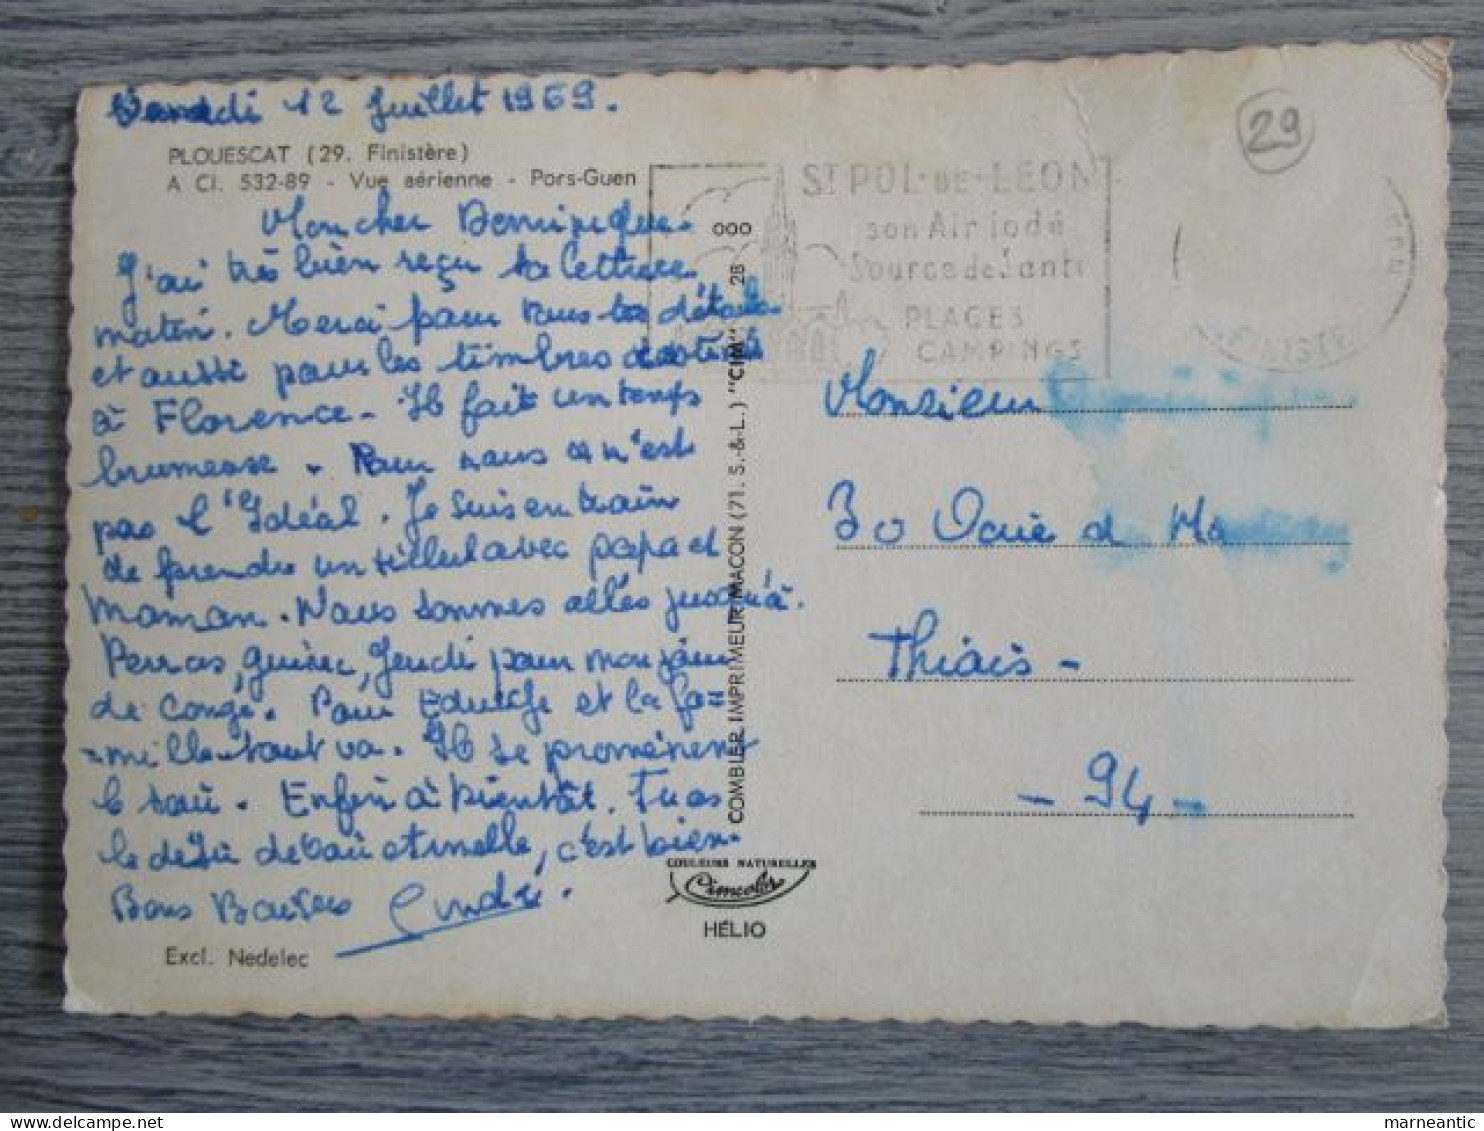 12 Juillet 1969.
PLOUESCAT (29. Finistère)
A CI. 532-89 - Vue aérienne - Pors-Guen
Mon cher Dominique.
J'ai très bien reçu ta lettre ce
matin. Merci pour tous tes détails
et aussi pour les timbres destinés
à Florence. Il fait un temps
brumeuse. Pour nous ce n'est
pas l'Idéal. Je suis en train
de prendre un avec papa et
Maman. Nous sommes allés jusqu'à.
Perros, guirec, Jeudi pour mon jour
de congé. Pour et la fa=
=mille tout va. Il se promènent
le soir. Enfin à bientôt. Tu as
le de Toi et'nelle, c'est bien.
Bons Baisers André.
Excl. Nedelec
COMBIER IMPRIMEUR MACON (71. S.-&-L.) "CIM"
28
000
COULEURS NATURELLES
Cimcolor
HÉLIO
ST POL-DE-LEON
son Air iodé
Source de Santé
PLAGES
CAMPINGS
FINISTE
29
Monsieur
30
Thiais -
- 94 -
marneantic